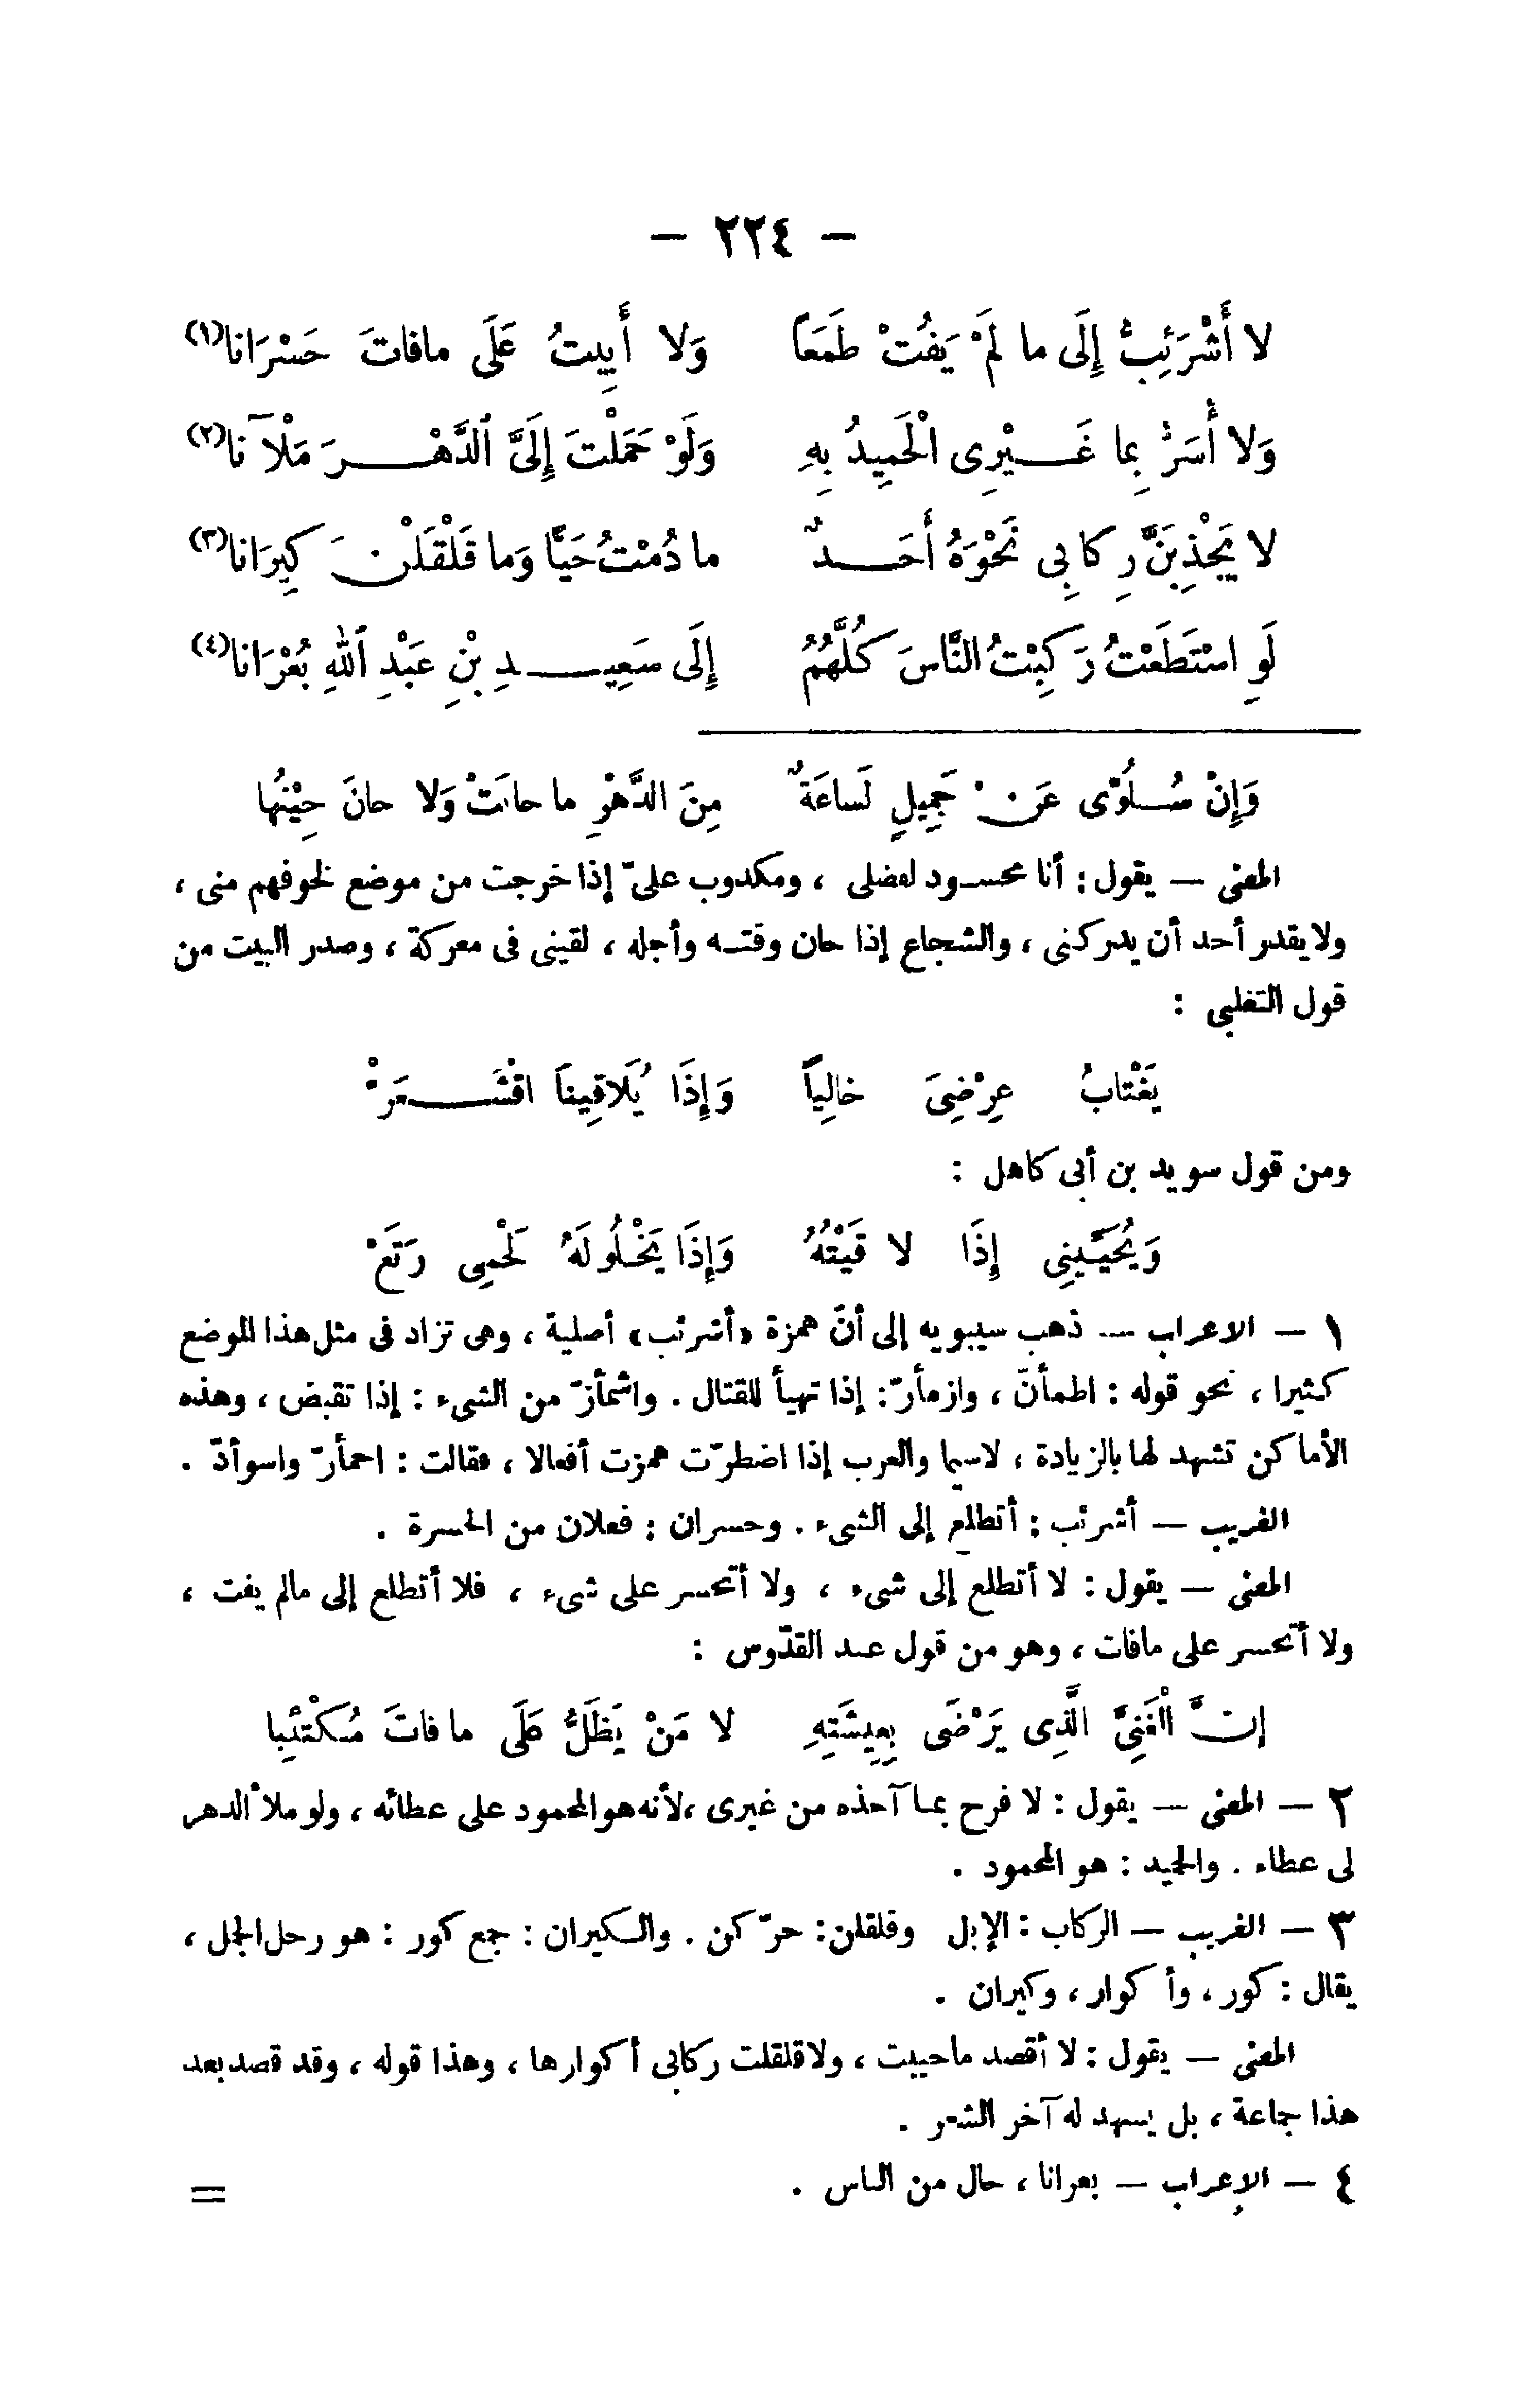 — ٢٢٤ —
لا أَشْرَئِبُّ إِلَى ما لَمْ يَفُتْ طَمَعًا وَلا أَبِيتُ عَلَى مافاتَ حَسْرَانا(١)
وَلا أُسَرُّ بِما غَيْرِى الْحَمِيدُ بِهِ وَلَوْ حَمَلْتَ إِلَىَّ ٱلدَّهْرَ مَلْآنا(٢)
لا يَجْذِبَنَّ رِكابِى نَحْوَهُ أَحَدٌ ما دُمْتُ حَيًّا وَما قَلْقَلْنَ كِيرَانا(٣)
لَوِ اسْتَطَعْتُ رَكِبْتُ النَّاسَ كُلَّهُمُ إِلَى سَعِيدِ بْنِ عَبْدِ ٱللهِ بُعْرَانا(٤)
وَإِنَّ سُلُوِّى عَنْ جَمِيلٍ لَساعَةٌ مِنَ الدَّهْرِ ما حانَتْ وَلا حانَ حِيْنُها
المعنى — يقول: أنا محسود لفضلى ، ومكذوب علىّ إذا خرجت من موضع لخوفهم منى ،
ولا يقدر أحد أن يدركنى ، والشجاع إذا حان وقته وأجله ، لقينى فى معركة ، وصدر البيت من
قول التغلبى :
يَغْتابُ عِرْضِىَ خالِياً وَإِذَا يُلَاقِيناَ اقْشَعَرْ
ومن قول سويد بن أبى كاهل :
وَيُحَيِّينِى إِذَا لا قَيْتُهُ وَإِذَا يَخْلُو لَهُ لَحْمِى رَتَعْ
١ — الاعراب — ذهب سيبويه إلى أنّ همزة «أشرئب» أصلية ، وهى تزاد فى مثل هذا الموضع
كثيرا ، نحو قوله : اطمأنّ ، وازمأرّ: إذا تهيأ للقتال . واشمأزّ من الشىء : إذا تقبض ، وهذه
الأماكن تشهد لها بالزيادة ، لاسيما والعرب إذا اضطرّت همزت أفعالا ، فقالت : احمأرّ واسوأدّ .
الغريب — أشرئب : أتطلع إلى الشىء . وحسران : فعلان من الحسرة .
المعنى — يقول : لا أتطلع إلى شىء ، ولا أتحسر على شىء ، فلا أتطلع إلى مالم يفت ،
ولا أتحسر على مافات ، وهو من قول عبد القدّوس :
إنَّ الْغَنِىَّ الَّذِى يَرْضَى بِعِيشَتِهِ لا مَنْ يَظَلُّ عَلَى ما فاتَ مُكْتَئِبا
٢ — المعنى — يقول : لا فرح بما آخذه من غيرى ،لأنه هو المحمود على عطائه ، ولو ملأ الدهر
لى عطاء . والحميد : هو المحمود .
٣ — الغريب — الركاب : الإبل وقلقلن: حرّكن . والكيران : جمع كور : هو رحل الجمل ،
يقال : كور ، وأكوار ، وكيران .
المعنى — يقول : لا أقصد ماحييت ، ولا قلقلت ركابى أكوارها ، وهذا قوله ، وقد قصد بعد
هذا جماعة ، بل يشهد له آخر الشعر .
٤ — الإعراب — بعرانا ، حال من الناس .
=